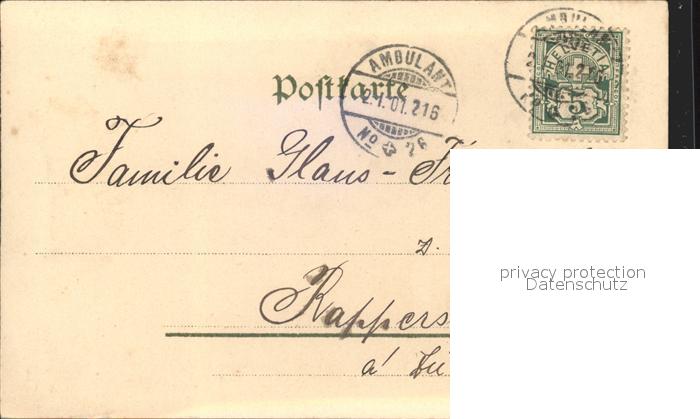 AMBULANT
Postkarte
2.1.01.216
No 26
HELVETIA
5
Familie Glaus - 
z.
Rappers
á
privacy protection
Datenschutz